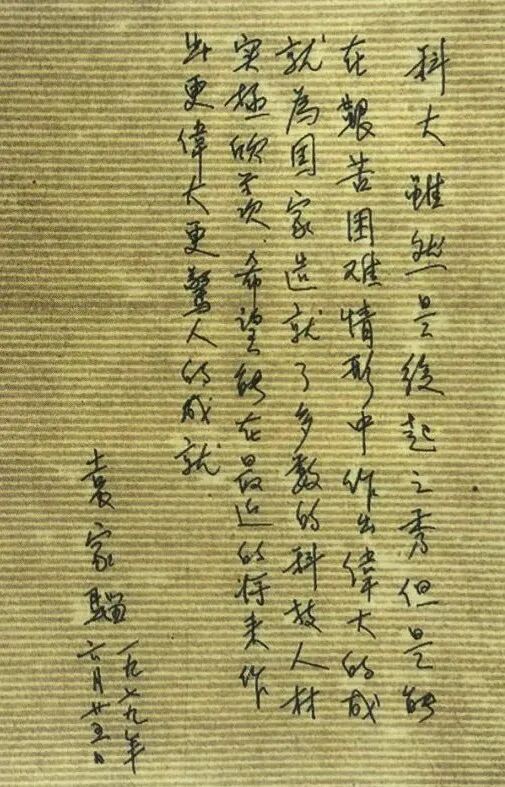 科大雖然是後起之秀但是能
在艱苦困难情形中作出偉大的成
就為国家造就了多数的科技人材
实極欣羡希望能在最近的将来作
出更偉大更驚人的成就
袁家騮
一九七九年
六月廿五日